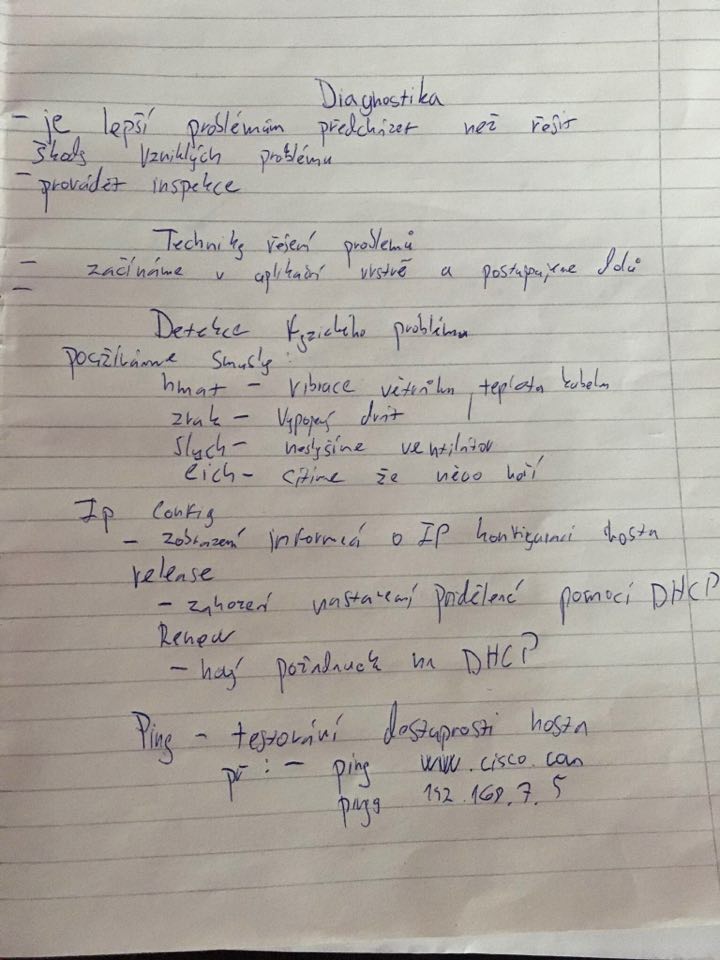 Diagnostika
- je lepší problémům předcházet než řešit
škody vzniklých problému
- provádět inspekce
Techniky řešení problemů
- začínáme v aplikační vrstvě a postupujeme dolů
-
Detekce fyzického problému
používáme smysly:
hmat - vibrace větráku, teplota kabelu
zrak - vypojený drát
Slych - neslyšíme ventilátor
čich - cítíme že něco hoří
Ip config
- zobrazení informcí o IP konfiguraci hosta
release
- zahození nastavení přidělené pomocí DHCP
Renew
- nový požadavek na DHCP
Ping - testování dostupnosti hosta
př: - ping www.cisco.com
ping 192.168.7.5